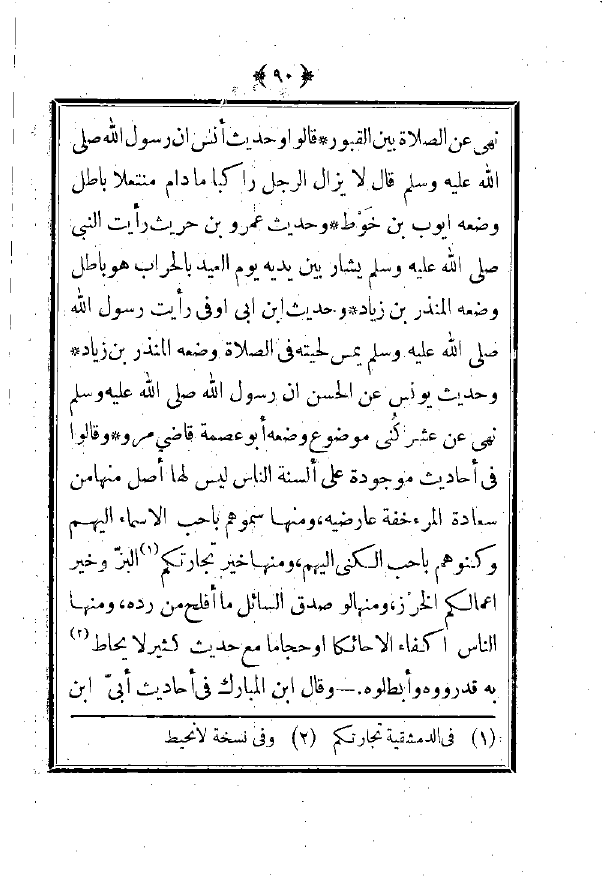 ﴿ ٩٠ ﴾
نهى عن الصلاة بين القبور * قالوا وحديث أنس ان رسول الله صلى
الله عليه وسلم قال لا يزال الرجل راكبا ما دام منتعلا باطل
وضعه ايوب بن خَوْط * وحديث عمرو بن حريث رأيت النبي
صلى الله عليه وسلم يشار بين يديه يوم العيد بالحراب هو باطل
وضعه المنذر بن زياد * وحديث ابن ابى اوفى رأيت رسول الله
صلى الله عليه وسلم يمس لحيته فى الصلاة وضعه المنذر بن زياد *
وحديث يونس عن الحسن ان رسول الله صلى الله عليه وسلم
نهى عن عشر كُنى موضوع وضعه أبو عصمة قاضي مرو * وقالوا
فى أحاديث موجودة على ألسنة الناس ليس لها أصل منها من
سعادة المرء خفة عارضيه، ومنها سموهم باحب الاسماء اليهم
وكنوهم باحب الكنى اليهم، ومنها خير تجارتكم (١) البزّ وخير
اعمالكم الخرْز، ومنها لو صدق السائل ما أفلح من رده، ومنها
الناس اكفاء الا حائكا او حجاما مع حديث كثير لا يحاط (٢)
به قد رووه وأبطلوه. — وقال ابن المبارك فى أحاديث أبىّ ابن
(١) فى الدمشقية تجارتكم (٢) وفى نسخة لانحيط